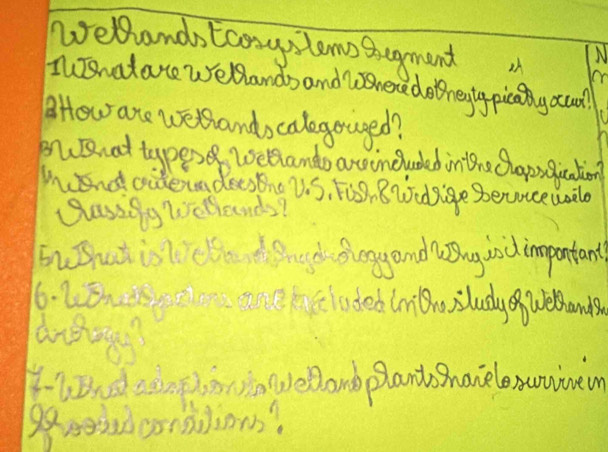 Wetlands Ecosystems Segment
1 What are Wetlands and Where do they typically occur?
2 How are Wetlands categorized?
3 What types of Wetlands are included in the classification?
4 What criteria does the U.S. Fish & Wildlife Service use to
classify Wetlands?
5 What is Wetland hydrology and Why is it important?
6- What factors are included in the study of Wetland hy
drology?
7- What adaptions to Wetland plants have to survive in
flooded conditions?